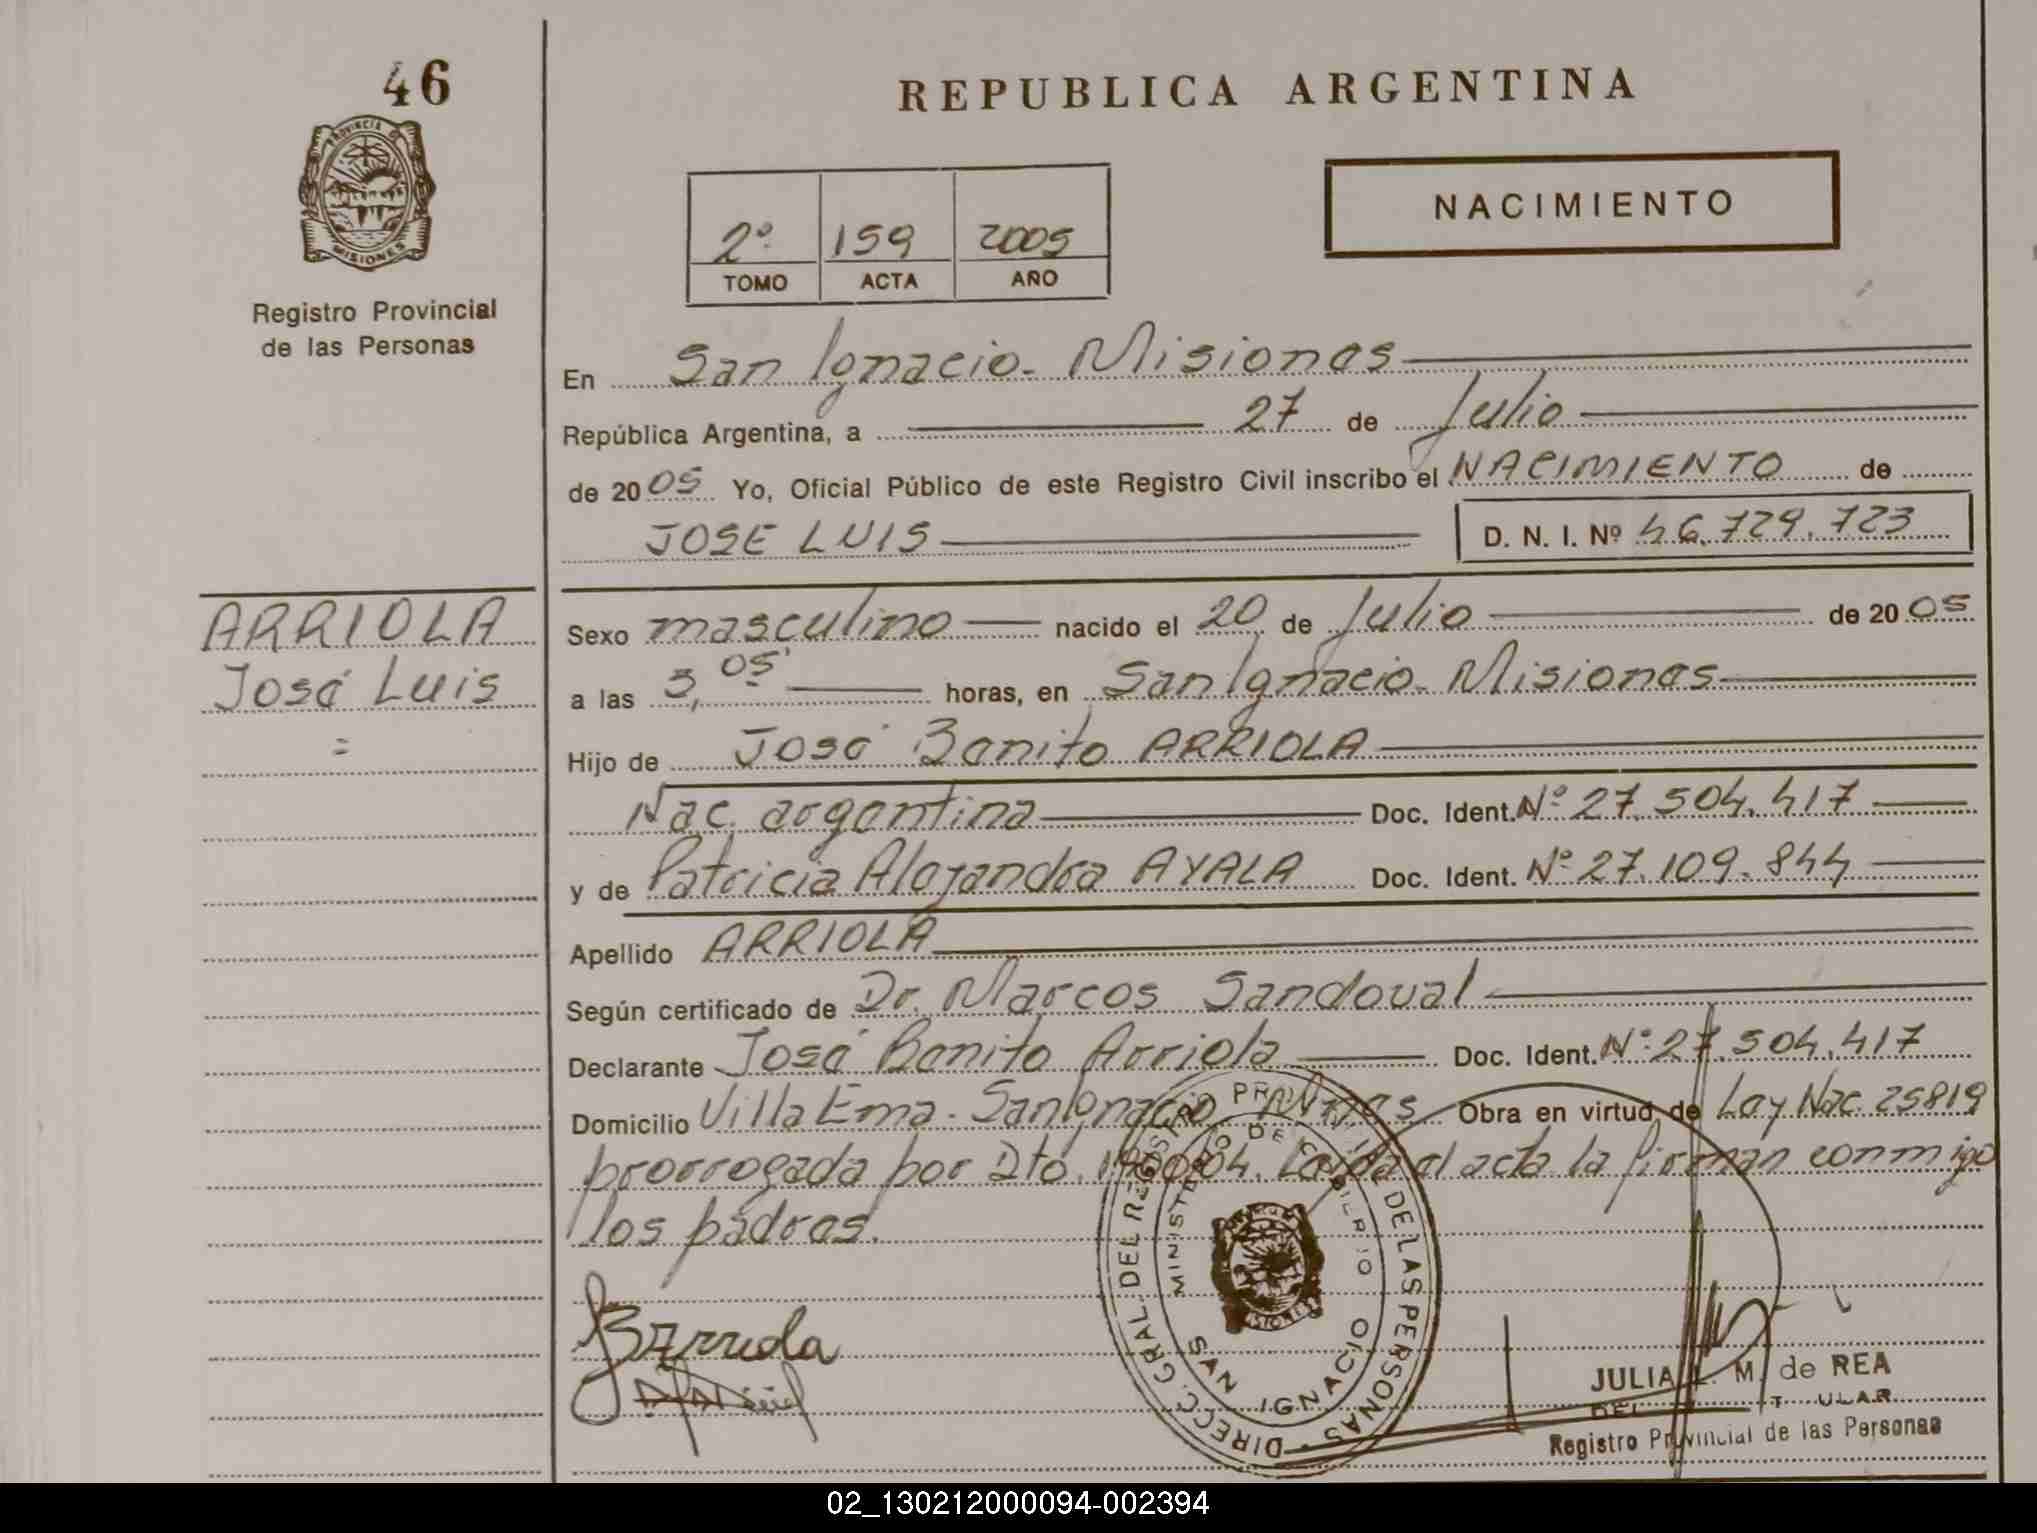 46
REPUBLICA ARGENTINA
PROVINCIA DE
MISIONES
Registro Provincial
de las Personas
2º 159 2005
TOMO ACTA AÑO
NACIMIENTO
En San Ignacio - Misiones
República Argentina, a 27 de Julio
de 2005 Yo, Oficial Público de este Registro Civil inscribo el NACIMIENTO de
JOSE LUIS D. N. I. Nº 46.729.723
ARRIOLA
José Luis
=
Sexo masculino nacido el 20 de Julio de 2005
a las 3,05' horas, en San Ignacio - Misiones
Hijo de José Benito ARRIOLA
Nac. argentina Doc. Ident. Nº 27.504.417
y de Patricia Alejandra AYALA Doc. Ident. Nº 27.109.844
Apellido ARRIOLA
Según certificado de Dr. Marcos Sandoval
Declarante José Benito Arriola Doc. Ident. Nº 27.504.417
Domicilio Villa Ema - San Ignacio Obra en virtud de Ley Nac. 25819
prorrogada por Dto. el acta la firman conmigo
los padres.
DIRECC. GRAL. DEL REGISTRO PROVINCIAL DE LAS PERSONAS
MINISTERIO DE GOBIERNO
SAN IGNACIO
MISIONES
JULIA L. M. de REA
Registro Provincial de las Personas
02_130212000094-002394